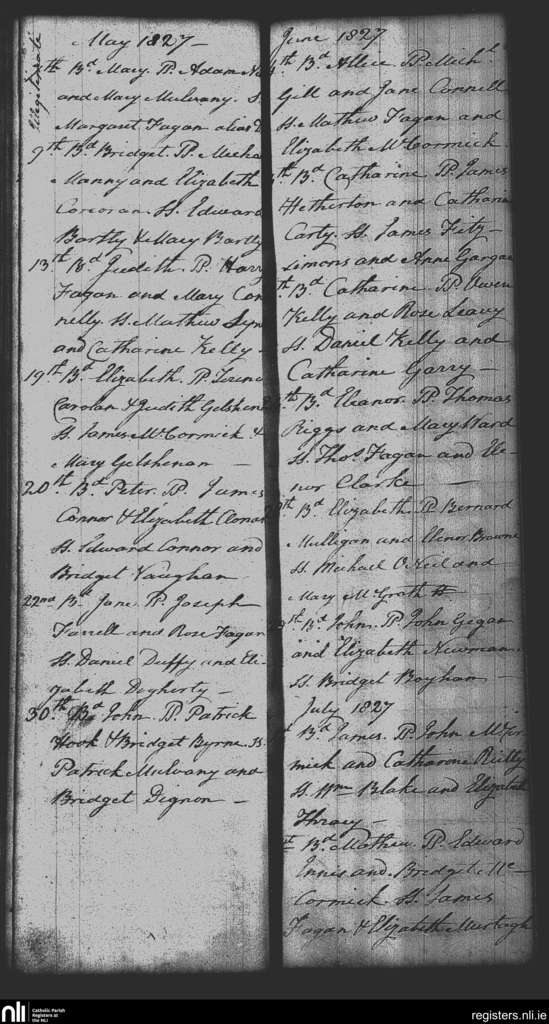 May 1827 —
Illegitimate
7th Bd Mary. P. Adam
and Mary Mulvany. S.
Margaret Fagan alias
9th Bd Bridget. P. Micha
Manny and Elizabeth
Corcoran. S. Edward
Bartly & Mary Bartly
13th Bd Judith. P. Harry
Fagan and Mary Con
nelly. S. Mathew Lyn
and Catharine Kelly —
19th Bd Elizabeth. P. Terence
Carolan & Judith Gelshenan
S. James McCormick &
Mary Gelshenan —
20th Bd Peter. P. James
Connor & Elizabeth
S. Edward Connor and
Bridget Vaughan
22nd Bd Jane. P. Joseph
Farrell and Rose Fagan
S. Daniel Duffy and Eli-
zabeth Dogherty —
30th Bd John. P. Patrick
Hook & Bridget Byrne. S.
Patrick Mulvany and
Bridget Dignon —
June 1827
th Bd Allice P. Michl
Gill and Jane Connell
S. Mathew Fagan and
Elizabeth McCormick.
th Bd Catharine P. James
Hetherton and Catharin
Carty. S. James Fitz-
simons and Anne Gargan
th Bd Catharine P. Owen
Kelly and Rose Leavy
S. Daniel Kelly and
Catharine Garry —
th Bd Eleanor. P. Thomas
Riggs and Mary Ward
S. Thos Fagan and Ele-
nor Clarke —
th Bd Elizabeth. P. Bernard
Mulligan and Elenor Browne
S. Michael O Neil and
Mary McGrath
th Bd John. P. John Gegan
and Elizabeth Newman.
S. Bridget Boyhan —
July 1827
st Bd James. P. John
mick and Catharine Reilly
S. Wm Blake and Elizabeth
Thracy —
Bd Mathew. P. Edward
Innis and Bridget Mc-
Cormick. S. James
Fagan & Elizabeth Murtagh
nli
Catholic Parish
Registers at
the NLI
registers.nli.ie